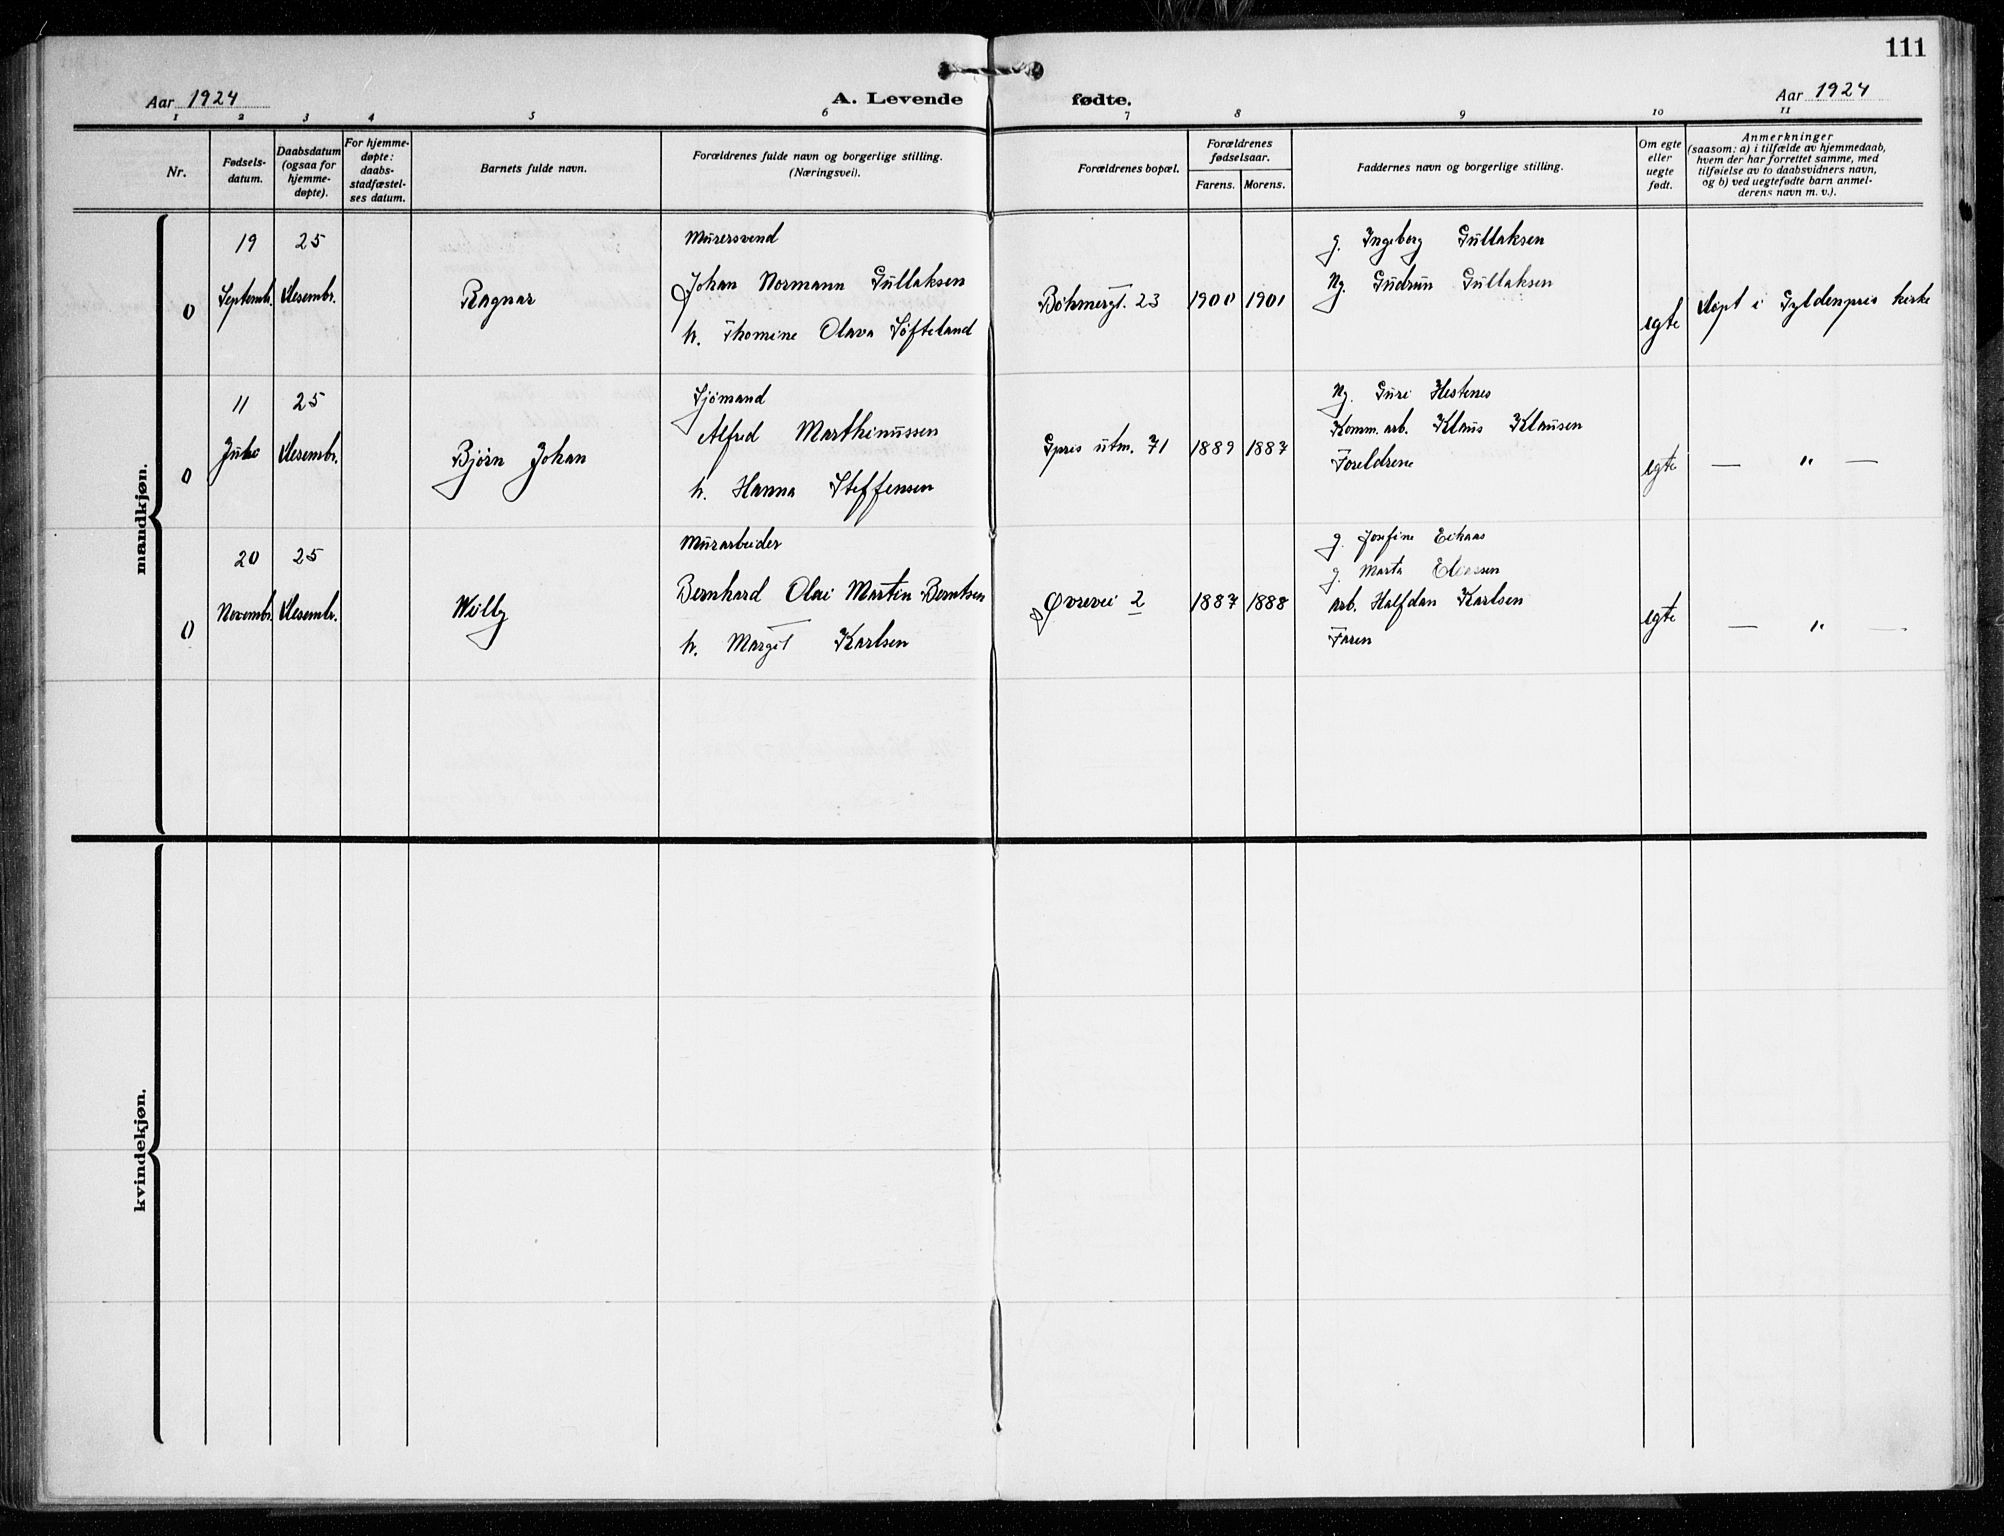 111
Aar 1924
A. Levende fødte.
Aar 1924
1 2 3 4 5 6 7 8 9 10 11
Nr.
Fødsels-
datum.
Daabsdatum
(ogsaa for
hjemme-
døpte).
For hjemme-
døpte:
daabs-
stadfæstel-
ses datum.
Barnets fulde navn.
Forældrenes fulde navn og borgerlige stilling.
(Næringsvei).
Forældrenes bopæl.
Forældrenes
fødselsaar.
Farens. Morens.
Faddernes navn og borgerlige stilling.
Om egte
eller
uegte
født.
Anmerkninger
(saasom: a) i tilfælde av hjemmedaab,
hvem der har forrettet samme, med
tilføielse av to daabsvidners navn,
og b) ved uegtefødte barn anmel-
derens navn m. v.).
mandkjøn.
0
19
Septembr.
25
Desembr.
Ragnar
Murersvend
Johan Normann Gullaksen
h. Thomine Olava Søfteland
Bøhmergt. 23
1900
1901
g. Ingeborg Gullaksen
Ug. Gudrun Gullaksen
egte
Døpt i Gyldenpris kirke
0
11
Juho
25
Desembr.
Bjørn Johan
Sjømand
Alfred Marthinussen
h. Hanna Steffensen
Gpris utm. 71
1889
1887
Ug. Guri Hestenes
Komm. arb. Klaus Klausen
Foreldrene
egte
— " —
0
20
Novembr.
25
Desembr.
Willy
Murarbeider
Bernhard Olai Martin Berntsen
h. Margit Karlsen
Øvrevei 2
1887
1888
g. Josefine
g. Marta Eliassen
arb. Halfdan Karlsen
Faren
egte
— " —
kvindekjøn.